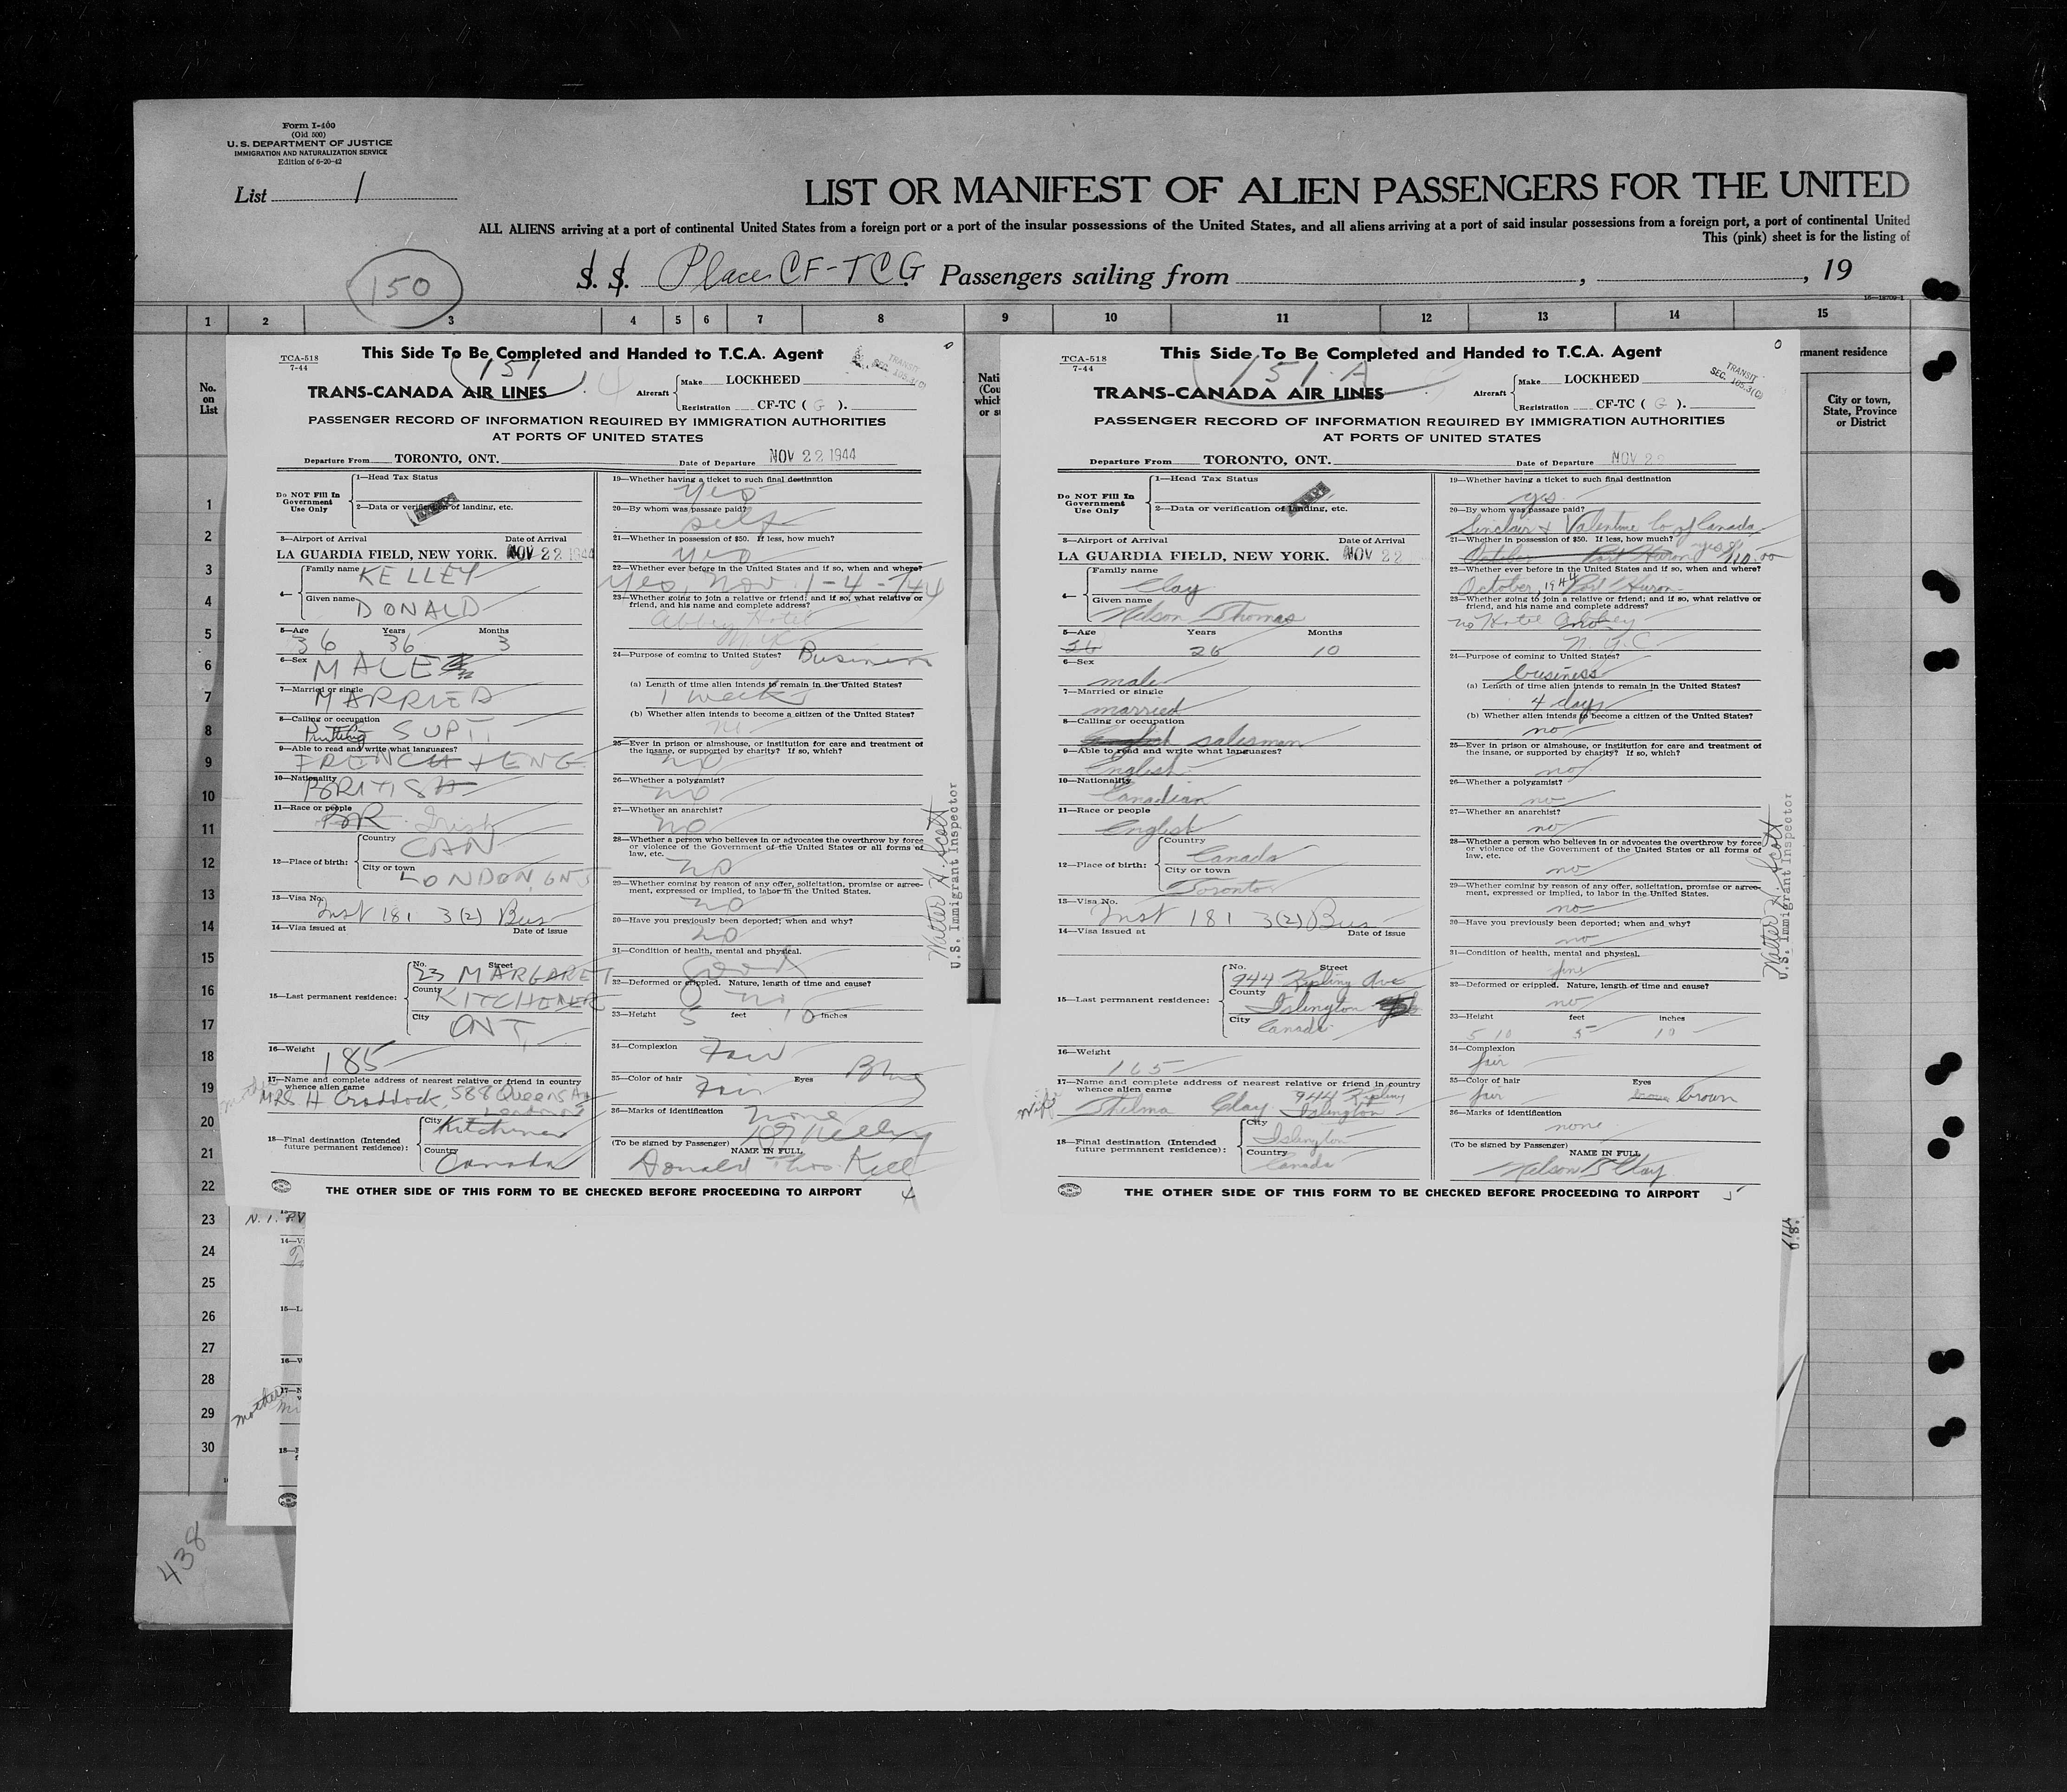 Form I-400
(Old 500)
U. S. DEPARTMENT OF JUSTICE
IMMIGRATION AND NATURALIZATION SERVICE
Edition of 6-20-42
List 1
LIST OR MANIFEST OF ALIEN PASSENGERS FOR THE UNITED
ALL ALIENS arriving at a port of continental United States from a foreign port or a port of the insular possessions of the United States, and all aliens arriving at a port of said insular possessions from a foreign port, a port of continental United
This (pink) sheet is for the listing of
150
S. S. Place CF-TCG Passengers sailing from , , 19
16—18709-1
1 2 3 4 5 6 7 8 9 10 11 12 13 14 15
No.
on
List
rmanent residence
City or town,
State, Province
or District
1
2
3
4
5
6
7
8
9
10
11
12
13
14
15
16
17
18
19
20
21
22
23
24
25
26
27
28
29
30
438
TCA-518
7-44
This Side To Be Completed and Handed to T.C.A. Agent
151
TRANS-CANADA AIR LINES
Aircraft Make LOCKHEED
Registration CF-TC ( G ).
TRANSIT
SEC. 105.3(C)
PASSENGER RECORD OF INFORMATION REQUIRED BY IMMIGRATION AUTHORITIES
AT PORTS OF UNITED STATES
Departure From TORONTO, ONT. Date of Departure NOV 22 1944
Do NOT Fill In
Government
Use Only
1—Head Tax Status
2—Data or verification of landing, etc.
3—Airport of Arrival Date of Arrival
LA GUARDIA FIELD, NEW YORK. NOV 22 1944
4— Family name KELLEY
Given name DONALD
5—Age Years Months
36 36 3
6—Sex MALE
7—Married or single MARRIED
8—Calling or occupation SUPT
9—Able to read and write what languages?
FRENCH + ENG
10—Nationality BRITISH
11—Race or people BR Irish
12—Place of birth: Country CAN
City or town LONDON, ONT
13—Visa No. Inst 181 3(2) Bus
14—Visa issued at Date of issue
15—Last permanent residence: No. Street
23 MARGARET
County KITCHENER
City ONT.
16—Weight 185
17—Name and complete address of nearest relative or friend in country
whence alien came
mother MRS H Craddock, 588 Queens Av
London
18—Final destination (Intended
future permanent residence): City Kitchener
Country Canada
19—Whether having a ticket to such final destination
Yes
20—By whom was passage paid?
self
21—Whether in possession of $50. If less, how much?
yes
22—Whether ever before in the United States and if so, when and where?
yes, Nov. 1-4-/44
23—Whether going to join a relative or friend; and if so, what relative or
friend, and his name and complete address?
Abbey Hotel
NYC
24—Purpose of coming to United States? Business
(a) Length of time alien intends to remain in the United States?
1 week
(b) Whether alien intends to become a citizen of the United States?
no
25—Ever in prison or almshouse, or institution for care and treatment of
the insane, or supported by charity? If so, which?
no
26—Whether a polygamist?
no
27—Whether an anarchist?
no
28—Whether a person who believes in or advocates the overthrow by force
or violence of the Government of the United States or all forms of
law, etc.
no
29—Whether coming by reason of any offer, solicitation, promise or agree-
ment, expressed or implied, to labor in the United States.
no
30—Have you previously been deported; when and why?
no
31—Condition of health, mental and physical.
Good
32—Deformed or crippled. Nature, length of time and cause?
no
33—Height 5 feet 10 inches
34—Complexion Fair
35—Color of hair Fair Eyes Blue
36—Marks of identification none
(To be signed by Passenger) DT Kelley
NAME IN FULL
Donald Thos. Kell
THE OTHER SIDE OF THIS FORM TO BE CHECKED BEFORE PROCEEDING TO AIRPORT
4
Walter H. Scott
U.S. Immigrant Inspector
TCA-518
7-44
This Side To Be Completed and Handed to T.C.A. Agent
151-A
TRANS-CANADA AIR LINES
Aircraft Make LOCKHEED
Registration CF-TC ( G ).
TRANSIT
SEC. 105.3(C)
PASSENGER RECORD OF INFORMATION REQUIRED BY IMMIGRATION AUTHORITIES
AT PORTS OF UNITED STATES
Departure From TORONTO, ONT. Date of Departure NOV 22
Do NOT Fill In
Government
Use Only
1—Head Tax Status
2—Data or verification of landing, etc.
3—Airport of Arrival Date of Arrival
LA GUARDIA FIELD, NEW YORK. NOV 22
4— Family name Clay
Given name Nelson Thomas
5—Age Years Months
36 26 10
6—Sex male
7—Married or single married
8—Calling or occupation English salesman
9—Able to read and write what languages?
English
10—Nationality Canadian
11—Race or people English
12—Place of birth: Country Canada
City or town Toronto
13—Visa No. Inst 181 3(2) Bus
14—Visa issued at Date of issue
15—Last permanent residence: No. Street
944 Kipling Ave
County Islington
City Canada
16—Weight 165
17—Name and complete address of nearest relative or friend in country
whence alien came
wife Thelma Clay 944 Kipling
Islington
18—Final destination (Intended
future permanent residence): City Islington
Country Canada
19—Whether having a ticket to such final destination
yes.
20—By whom was passage paid?
Sinclair & Valentine Co of Canada
21—Whether in possession of $50. If less, how much?
October Port Huron yes $110.00
22—Whether ever before in the United States and if so, when and where?
October, 1944 Port Huron
23—Whether going to join a relative or friend; and if so, what relative or
friend, and his name and complete address?
no Hotel Abbey
N.Y.C.
24—Purpose of coming to United States?
business
(a) Length of time alien intends to remain in the United States?
4 days
(b) Whether alien intends to become a citizen of the United States?
no
25—Ever in prison or almshouse, or institution for care and treatment of
the insane, or supported by charity? If so, which?
no
26—Whether a polygamist?
no
27—Whether an anarchist?
no
28—Whether a person who believes in or advocates the overthrow by force
or violence of the Government of the United States or all forms of
law, etc.
no
29—Whether coming by reason of any offer, solicitation, promise or agree-
ment, expressed or implied, to labor in the United States.
no
30—Have you previously been deported; when and why?
no
31—Condition of health, mental and physical.
fine
32—Deformed or crippled. Nature, length of time and cause?
no
33—Height feet inches
5 10 5 10
34—Complexion
fair
35—Color of hair Eyes
fair brown
36—Marks of identification
none
(To be signed by Passenger) NAME IN FULL
Nelson T Clay
THE OTHER SIDE OF THIS FORM TO BE CHECKED BEFORE PROCEEDING TO AIRPORT
5
Walter H. Scott
U.S. Immigrant Inspector
mother